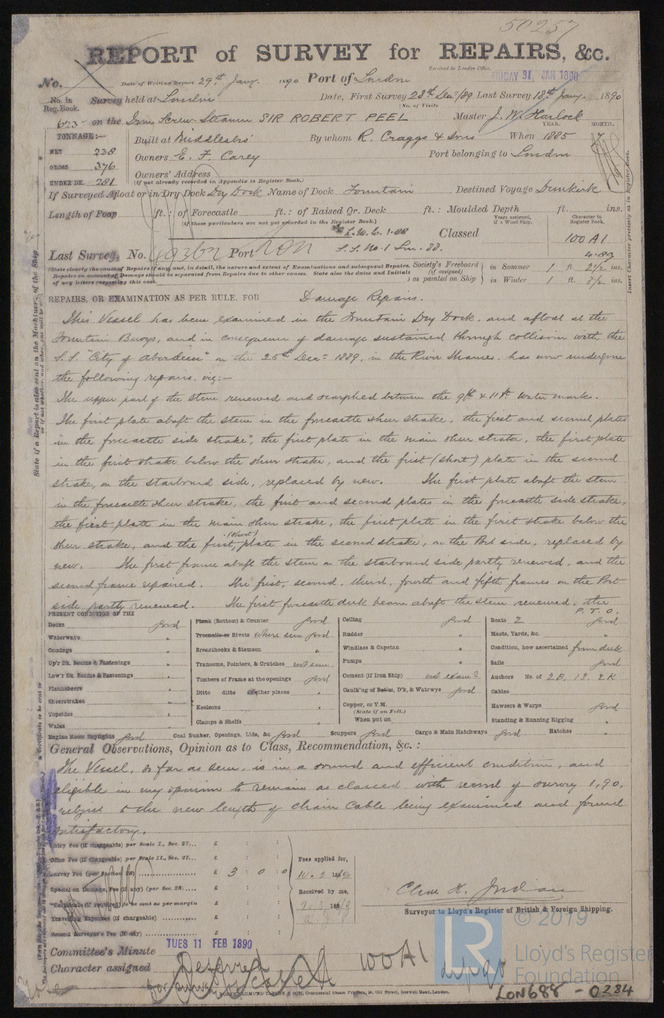 50257
REPORT of SURVEY for REPAIRS, &c.
Received in London Office,
FRIDAY 31 JAN 1890
No. Date of Writing Report 29th Jany. 1890 Port of London
No. in Reg. Book. Survey held at London Date, First Survey 28th Dec/89 Last Survey 18th Jany. 1890
No. of Visits
673 on the Iron Screw Steamer SIR ROBERT PEEL Master J. W. Harlock
TONNAGE:— Built at Middlesbro By whom R. Craggs & Sons When 1885 YEAR. MONTH. 7
NET 238 Owners E. F. Carey Port belonging to London
GROSS 376
UNDER DK. 281 Owners' Address
(If not already recorded in Appendix in Register Book.)
If Surveyed Afloat or in Dry Dock Dry Dock Name of Dock Fountain Destined Voyage Dunkirk
Length of Poop ft.: of Forecastle ft.: of Raised Qr. Deck ft.: Moulded Depth ft. ins.
(If these particulars are not yet recorded in the Register Book.)
Classed
Character in Register Book.
100 A1
S.S. No. 1 Lon. 88.
Last Survey, No. 49362 Port Lon
4.89
Society's Freeboard (if assigned) as painted on Ship in Summer 1 ft. 2½ ins.
in Winter 1 ft.
REPAIRS, OR EXAMINATION AS PER RULE, FOR Damage Repairs.
This Vessel has been examined in the Fountain Dry Dock and afloat at the
Fountain Buoys, and in consequence of damage sustained through collision with the
S.S. "City of Aberdeen" on the 25th Decr 1889, in the River Thames, has now undergone
the following repairs, viz:—
The upper part of the stem renewed and scarphed between the 9ft & 11ft water marks.
The first plate abaft the stem in the forecastle sheer strake, the first and second plates
in the forecastle side strake, the first plate in the main sheer strake, the first plate
in the first strake below the sheer strake, and the first (short) plate in the second
strake, on the starboard side, replaced by new. The first plate abaft the stem
in the forecastle sheer strake, the first and second plates in the forecastle side strake,
the first plate in the main sheer strake, the first plate in the first strake below the
sheer strake, and the first (short) plate in the second strake, on the Port side, replaced by
new. The first frame abaft the stem on the starboard side partly renewed, and the
second frame repaired. The first, second, third, fourth and fifth frames on the Port
side partly renewed. The first forecastle deck beam abaft the stem renewed, the
P.T.O.
PRESENT CONDITION OF THE
Decks good
Waterways "
Comings "
Up'r Dk. Beams & Fastenings "
Low'r Dk. Beams & Fastenings "
Planksheers "
Sheerstrakes "
Topsides "
Wales "
Engine Room Skylights good
Plank (Bottom) & Counter good
Treenails or Rivets where seen good
Breasthooks & Stemson "
Transoms, Pointers, & Crutches not seen
Timbers of Frame at the openings good
Ditto ditto at other places "
Keelsons "
Clamps & Shelfs "
Coal Bunker, Openings, Lids, &c. good
Ceiling good
Rudder "
Windlass & Capstan "
Pumps "
Cement (if Iron Ship) not exam'd
Caulk'ng of Bottom, D'k, & Watrwys good
Copper, or Y.M.
(State if on Felt.)
When put on
Scuppers good
Cargo & Main Hatchways good
Boats 2 good
Masts, Yards, &c. "
Condition, how ascertained from deck
Sails good
Anchors No. of 2B, 1S, 2K
Cables
Hawsers & Warps good
Standing & Running Rigging "
Hatches "
General Observations, Opinion as to Class, Recommendation, &c.:
The Vessel, so far as seen, is in a sound and efficient condition, and
eligible in my opinion to remain as classed with record of survey 1,90,
subject to the new length of chain cable being examined and found
satisfactory.
Entry Fee (if chargeable) per Scale I., Sec. 27... £
Office Fee (if chargeable) per Scale II., Sec. 27... £
Survey Fee (per Section 28) £ 3 0 0
Special or Damage Fee (if any) (per Sec. 28) £
Certificate (if required) to be sent as per margin £
Travelling Expenses (if chargeable) £
Second Surveyor's Fee (if any) £
Fees applied for,
Received by me,
Surveyor to Lloyd's Register of British & Foreign Shipping.
Committee's Minute TUES 11 FEB 1890
Character assigned Deserved 100A1
© 2019
LR
Lloyd's Register
Foundation
LON688-0234